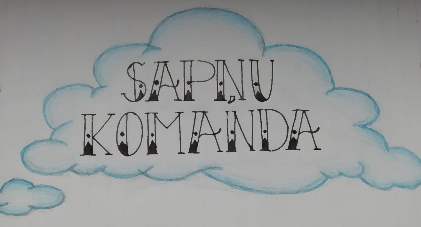 SAPŅU
KOMANDA